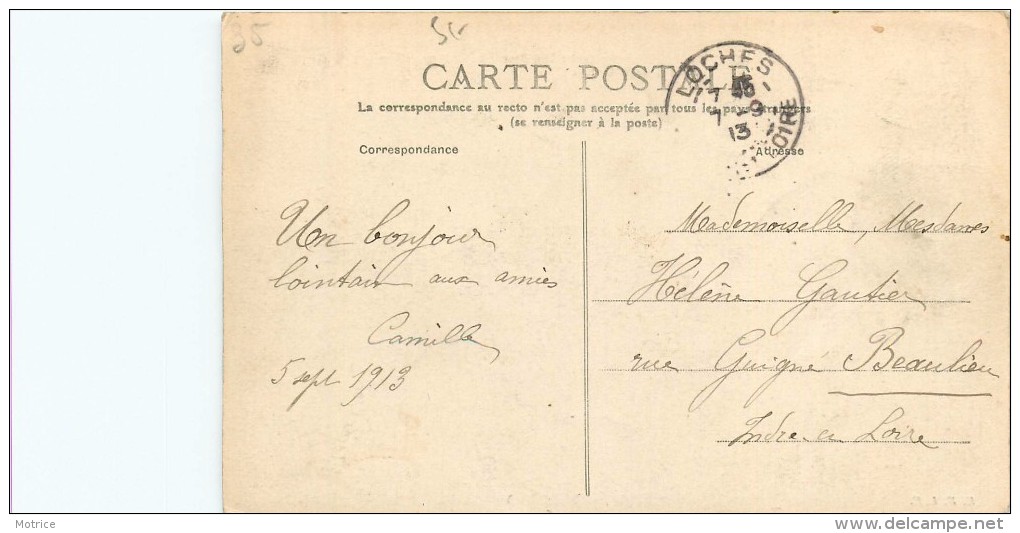 35
CARTE POSTALE
La correspondance au recto n'est pas acceptée par tous les pays étrangers
(se renseigner à la poste)
Correspondance
Adresse
LOCHES
7 9
13
LOIRE
Un bonjour
lointain aux amies
Camille
5 sept 1913
Mademoiselle, Mesdames
Hélène Gautier
rue Guigné Beaulieu
Indre et Loire
Motrice
delcampe.net